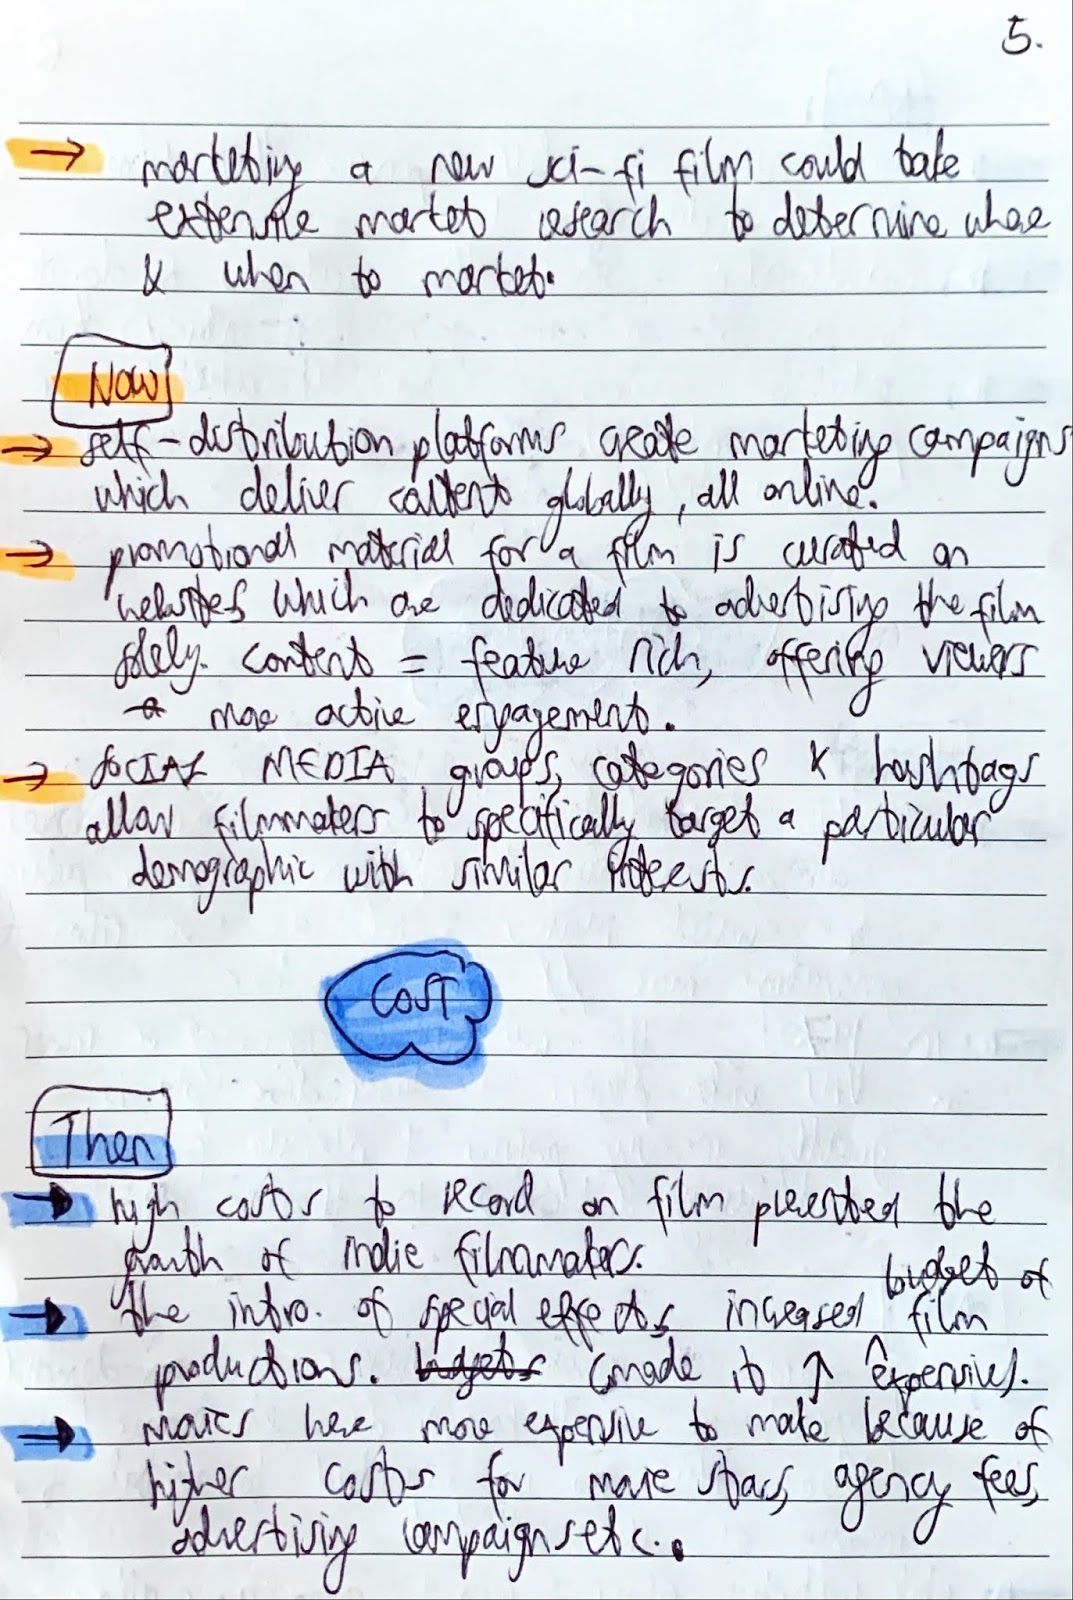 5.
→ marketing a new sci-fi film could take
extensive market research to determine where
& when to market.
Now
→ self-distribution platforms create marketing campaigns
which deliver content globally, all online.
→ promotional material for a film is curated on
websites which are dedicated to advertising the film
solely. content = feature rich, offering viewers
a more active engagement.
→ SOCIAL MEDIA groups, categories & hashtags
allow filmmakers to specifically target a particular
demographic with similar interests.
COST
Then
→ high costs to record on film prevented the
growth of indie filmmakers.
budget of
→ the intro. of special effects increased film
productions. budgets (made it ↑ expensive).
→ movies were more expensive to make because of
higher costs for movie stars, agency fees,
advertising campaigns etc..